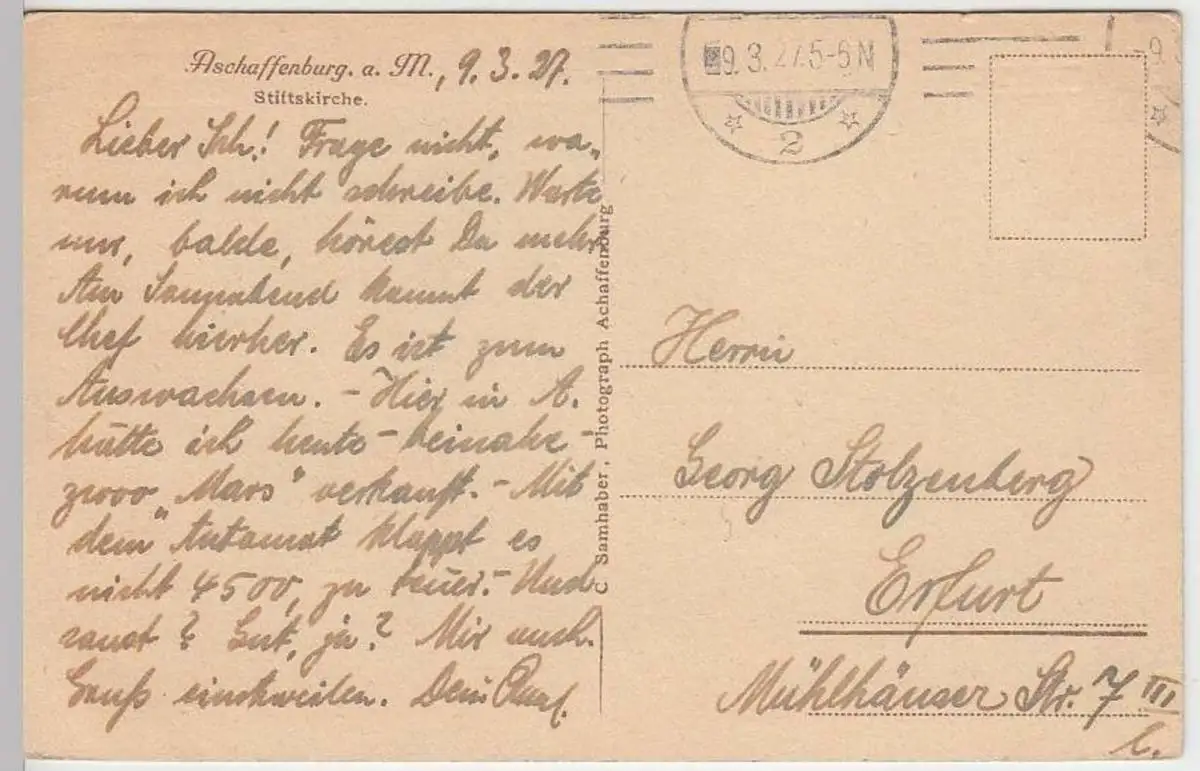 Aschaffenburg. a. M., 9. 3. 27.
Stiftskirche.
Lieber Sch.! Frage nicht, wa-
rum ich nicht schreibe. Warte
nur, balde, hörest Du mehr
Am Sonnabend kommt der
Chef hierher. Es ist zum
Auswachsen. – Hier in A.
hätte ich heute – beinahe –
zwoo „Mars" verkauft. – Mit
dem Automat klappt es
nicht 4500, zu teuer. – Und
sonst? Gut, ja? Mir auch.
Gruß einstweilen. Dein
C Samhaber, Photograph Achaffenburg
9. 3. 27. 5-6 N
2
-9
Herrn
Georg Stolzenberg
Erfurt
Mühlhäuser Str. 7 III
l.